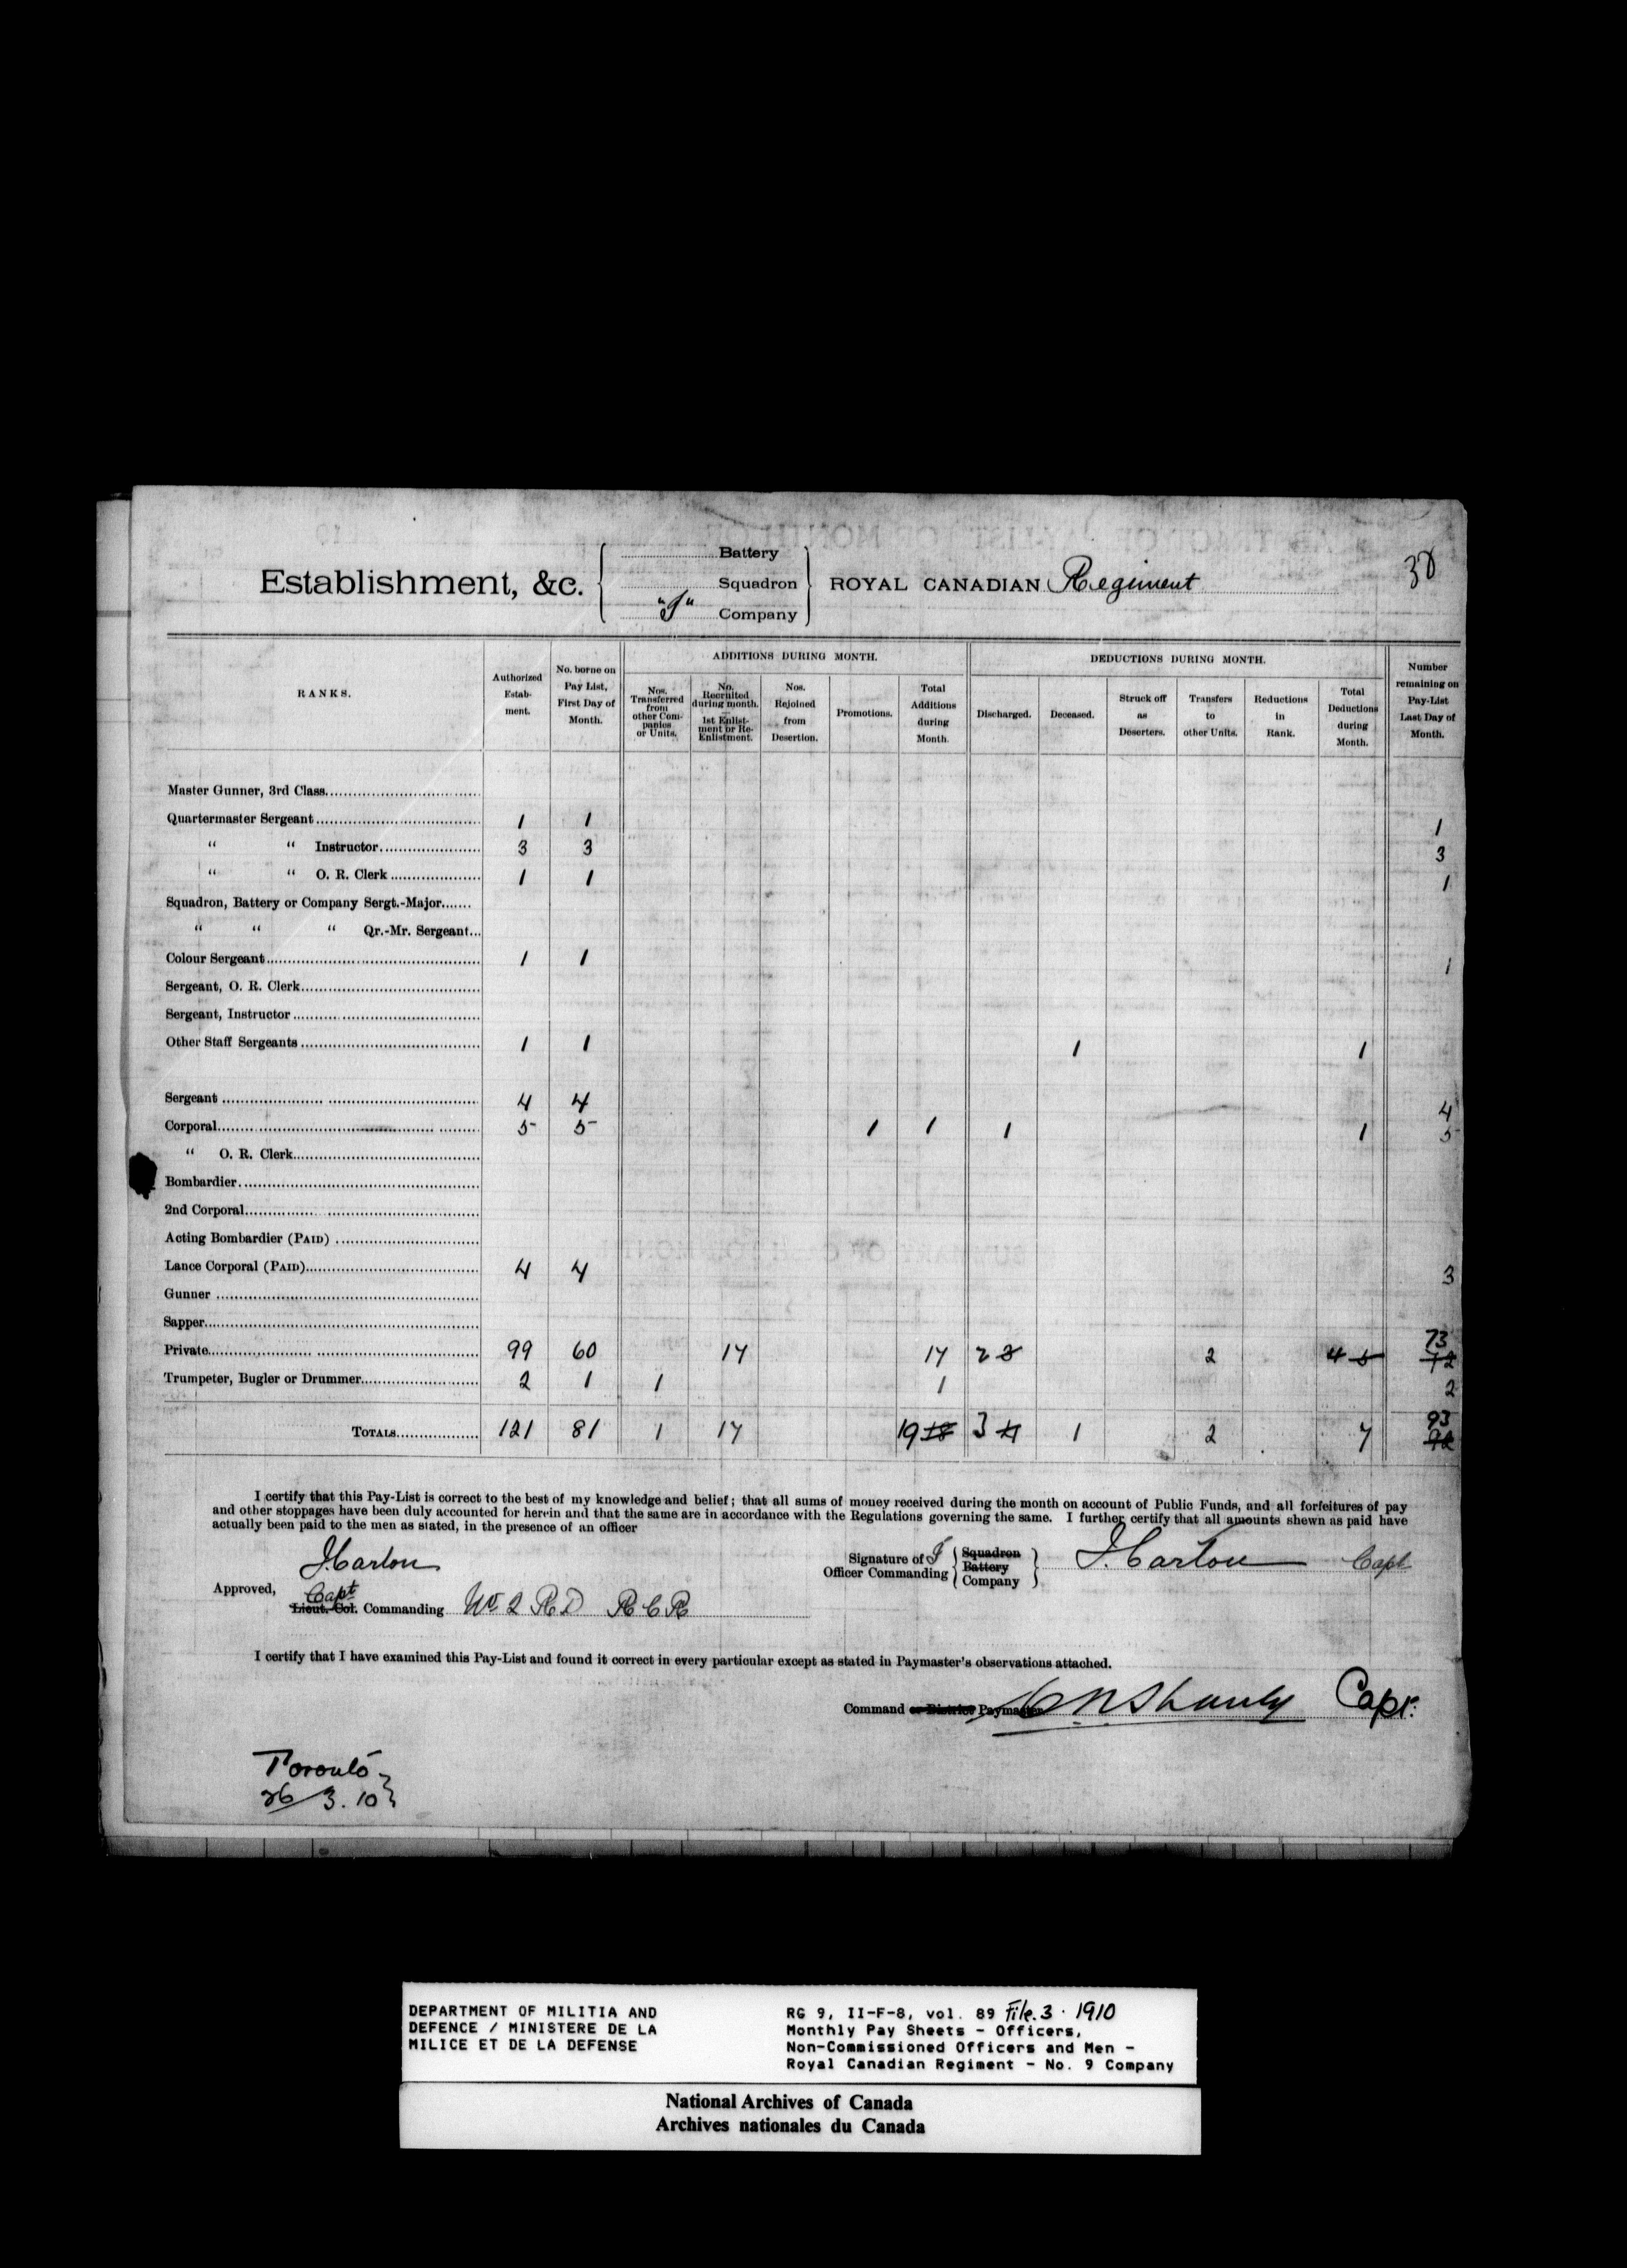 38
Establishment, &c.
Battery
Squadron
Company
ROYAL CANADIAN Regiment
RANKS.
Authorized Establishment.
No. borne on Pay List, First Day of Month.
ADDITIONS DURING MONTH.
Nos. Transferred from other Companies or Units.
No. Recruited during month. — 1st Enlistment or Re-Enlistment.
Nos. Rejoined from Desertion.
Promotions.
Total Additions during Month.
DEDUCTIONS DURING MONTH.
Discharged.
Deceased.
Struck off as Deserters.
Transfers to other Units.
Reductions in Rank.
Total Deductions during Month.
Number remaining on Pay-List Last Day of Month.
Master Gunner, 3rd Class
Quartermaster Sergeant 1 1 1
" " Instructor 3 3 3
" " O. R. Clerk 1 1 1
Squadron, Battery or Company Sergt.-Major
" " " Qr.-Mr. Sergeant
Colour Sergeant 1 1 1
Sergeant, O. R. Clerk
Sergeant, Instructor
Other Staff Sergeants 1 1 1 1
Sergeant 4 4 4
Corporal 5 5 1 1 1 1 5
" O. R. Clerk
Bombardier
2nd Corporal
Acting Bombardier (PAID)
Lance Corporal (PAID) 4 4 3
Gunner
Sapper
Private 99 60 17 17 2 3 2 4 5 73 72
Trumpeter, Bugler or Drummer 2 1 1 1 2
TOTALS 121 81 1 17 19 18 3 4 1 2 7 93 92
I certify that this Pay-List is correct to the best of my knowledge and belief; that all sums of money received during the month on account of Public Funds, and all forfeitures of pay
and other stoppages have been duly accounted for herein and that the same are in accordance with the Regulations governing the same. I further certify that all amounts shewn as paid have
actually been paid to the men as stated, in the presence of an officer
Signature of Officer Commanding
Squadron
Battery
Company
Capt
Approved,
Capt
Lieut.-Col. Commanding No 2 R D R C R
I certify that I have examined this Pay-List and found it correct in every particular except as stated in Paymaster's observations attached.
Command or District Paymaster Capt.
Toronto
26/3.10
DEPARTMENT OF MILITIA AND
DEFENCE / MINISTERE DE LA
MILICE ET DE LA DEFENSE
RG 9, II-F-8, vol. 89 File. 3 · 1910
Monthly Pay Sheets - Officers,
Non-Commissioned Officers and Men -
Royal Canadian Regiment - No. 9 Company
National Archives of Canada
Archives nationales du Canada